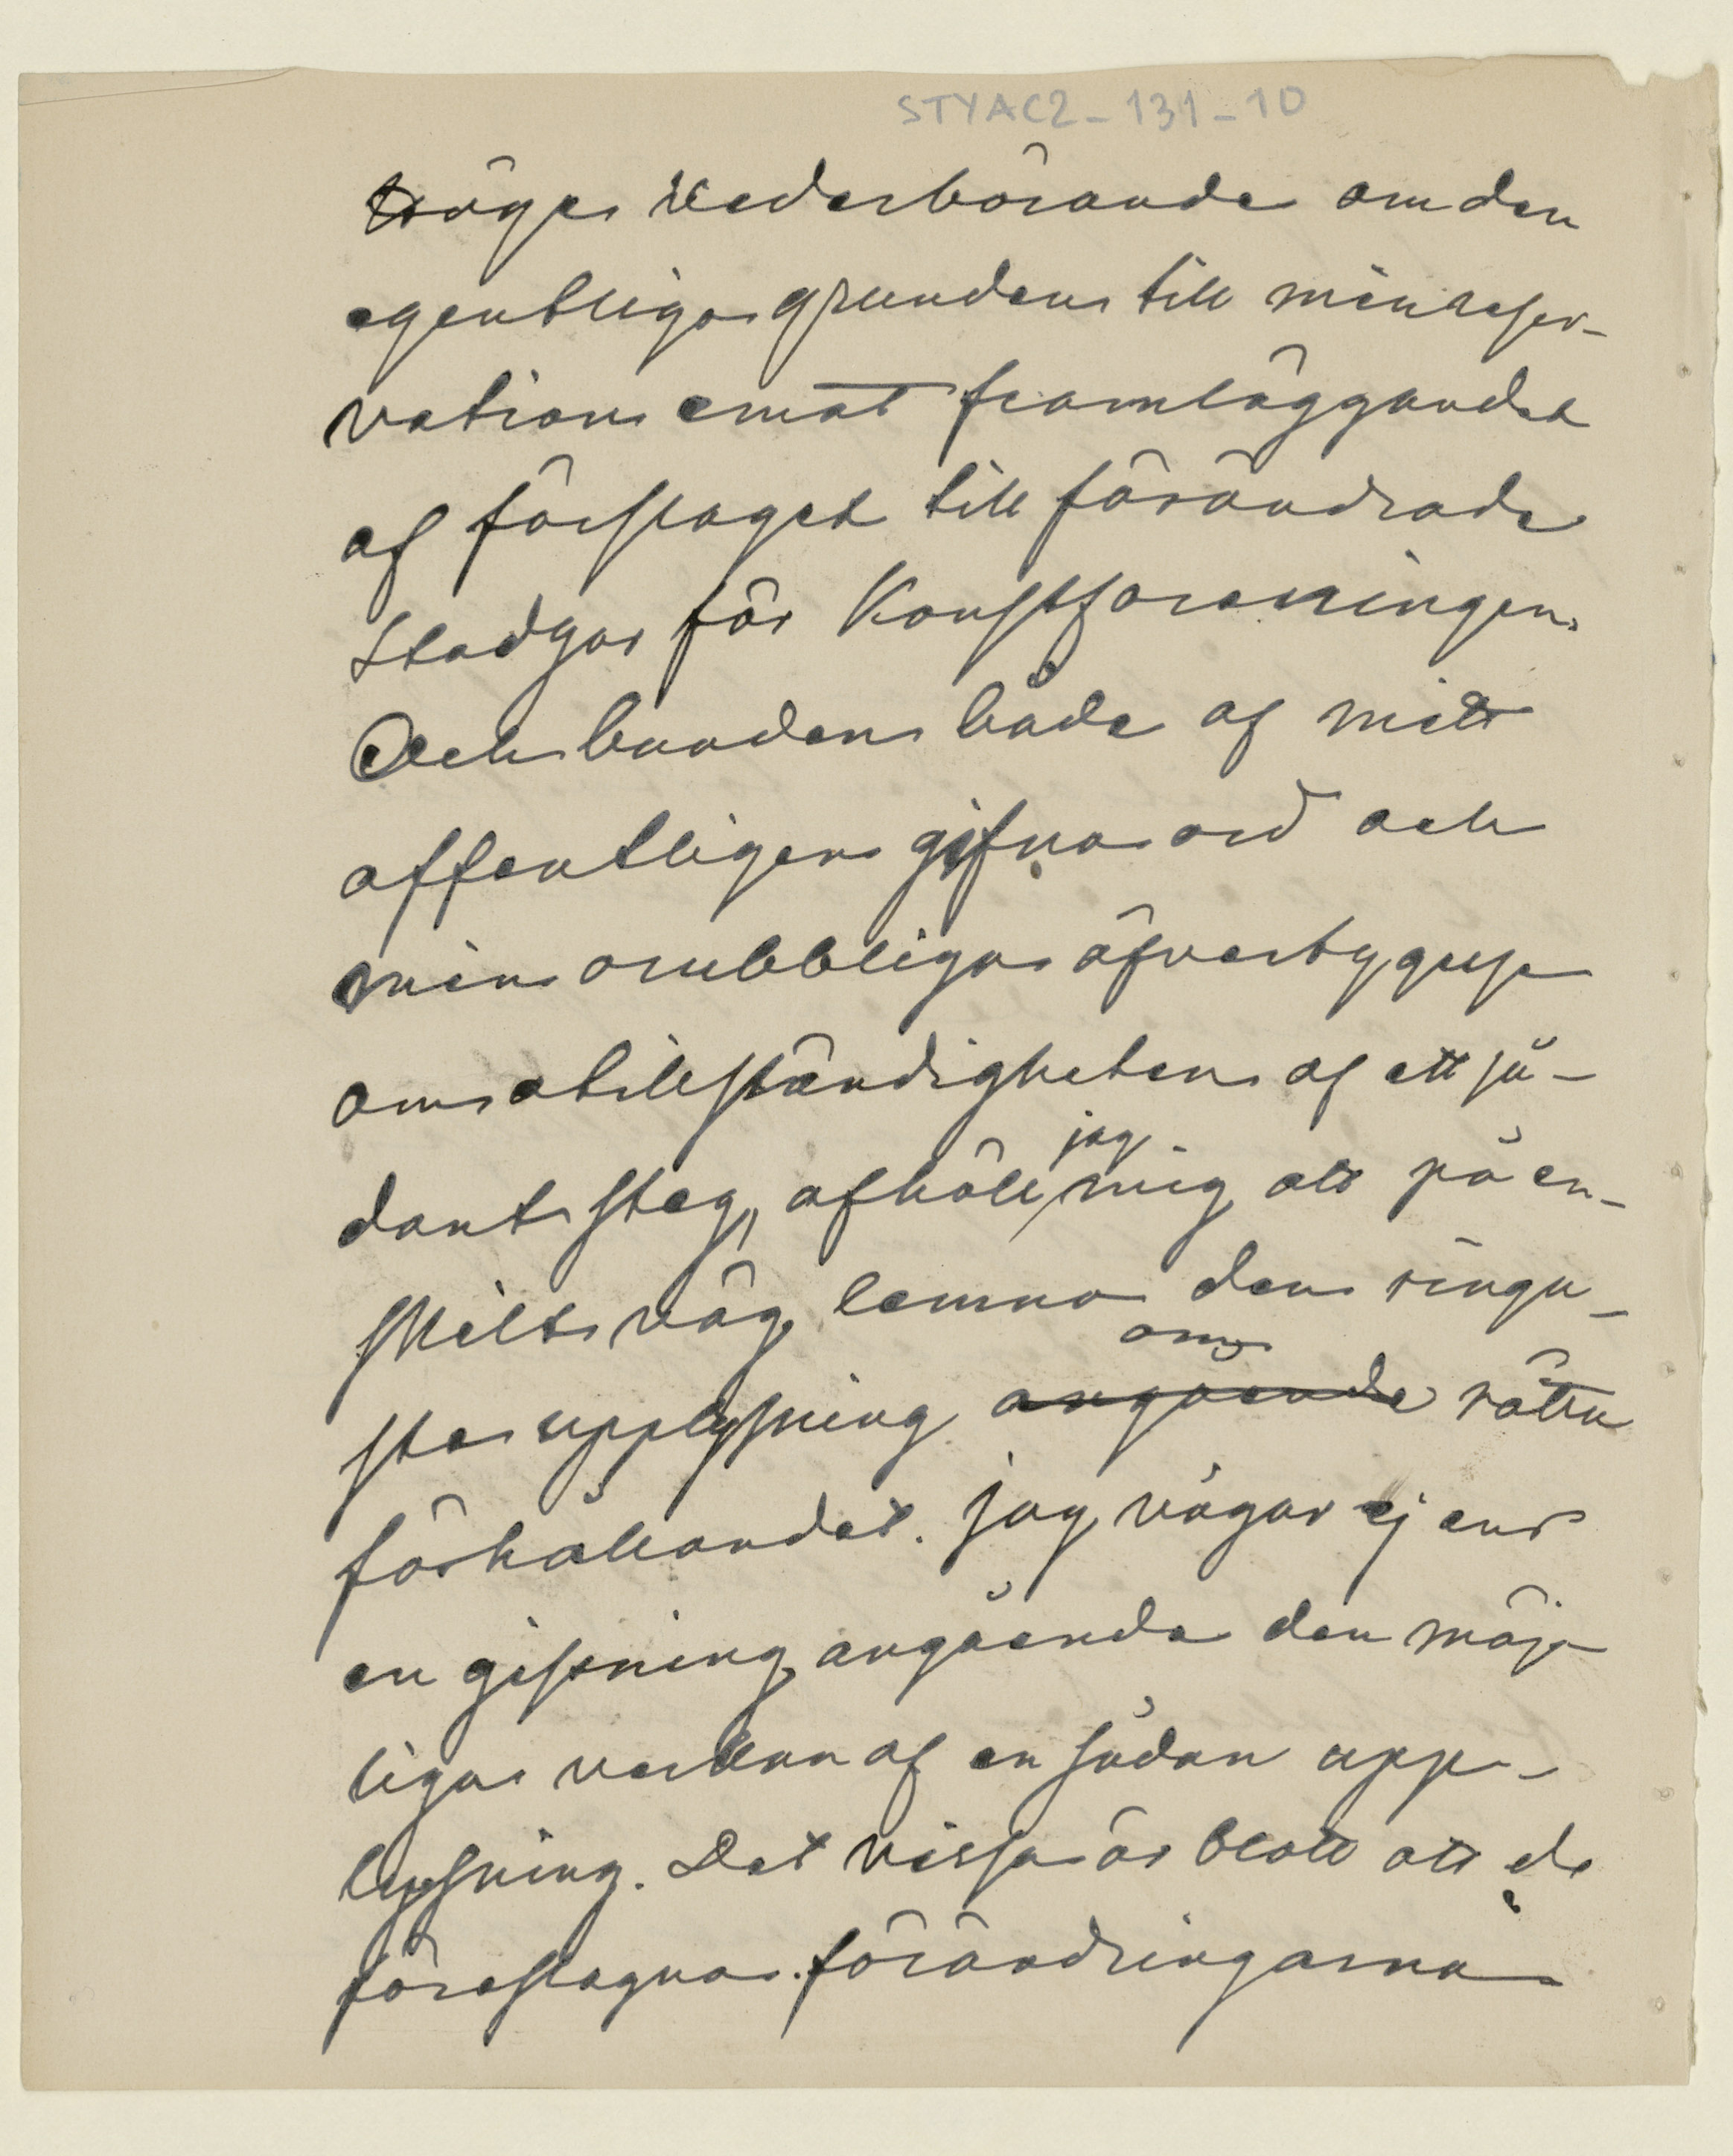 STYAC2-131-10
tröga Vederbörande om den
egentliga grunden till min reser-
vation emot framläggandet
af förslaget till förändrade
Stadgar för Konstföreningen.
Och bunden både af mitt
offentligen gifna ord och
min orubbliga öfvertygelse
om otillständigheten af ett så-
dant steg, afhöll jag mig att på en-
skilt väg lemna den ringa-
ste upplysning om angående rätta
förhållandet. Jag vågar ej ens
en gissning angående den möj-
liga verkan af en sådan upp-
lysning. Det vissa är blott att de
föreslagna förändringarna